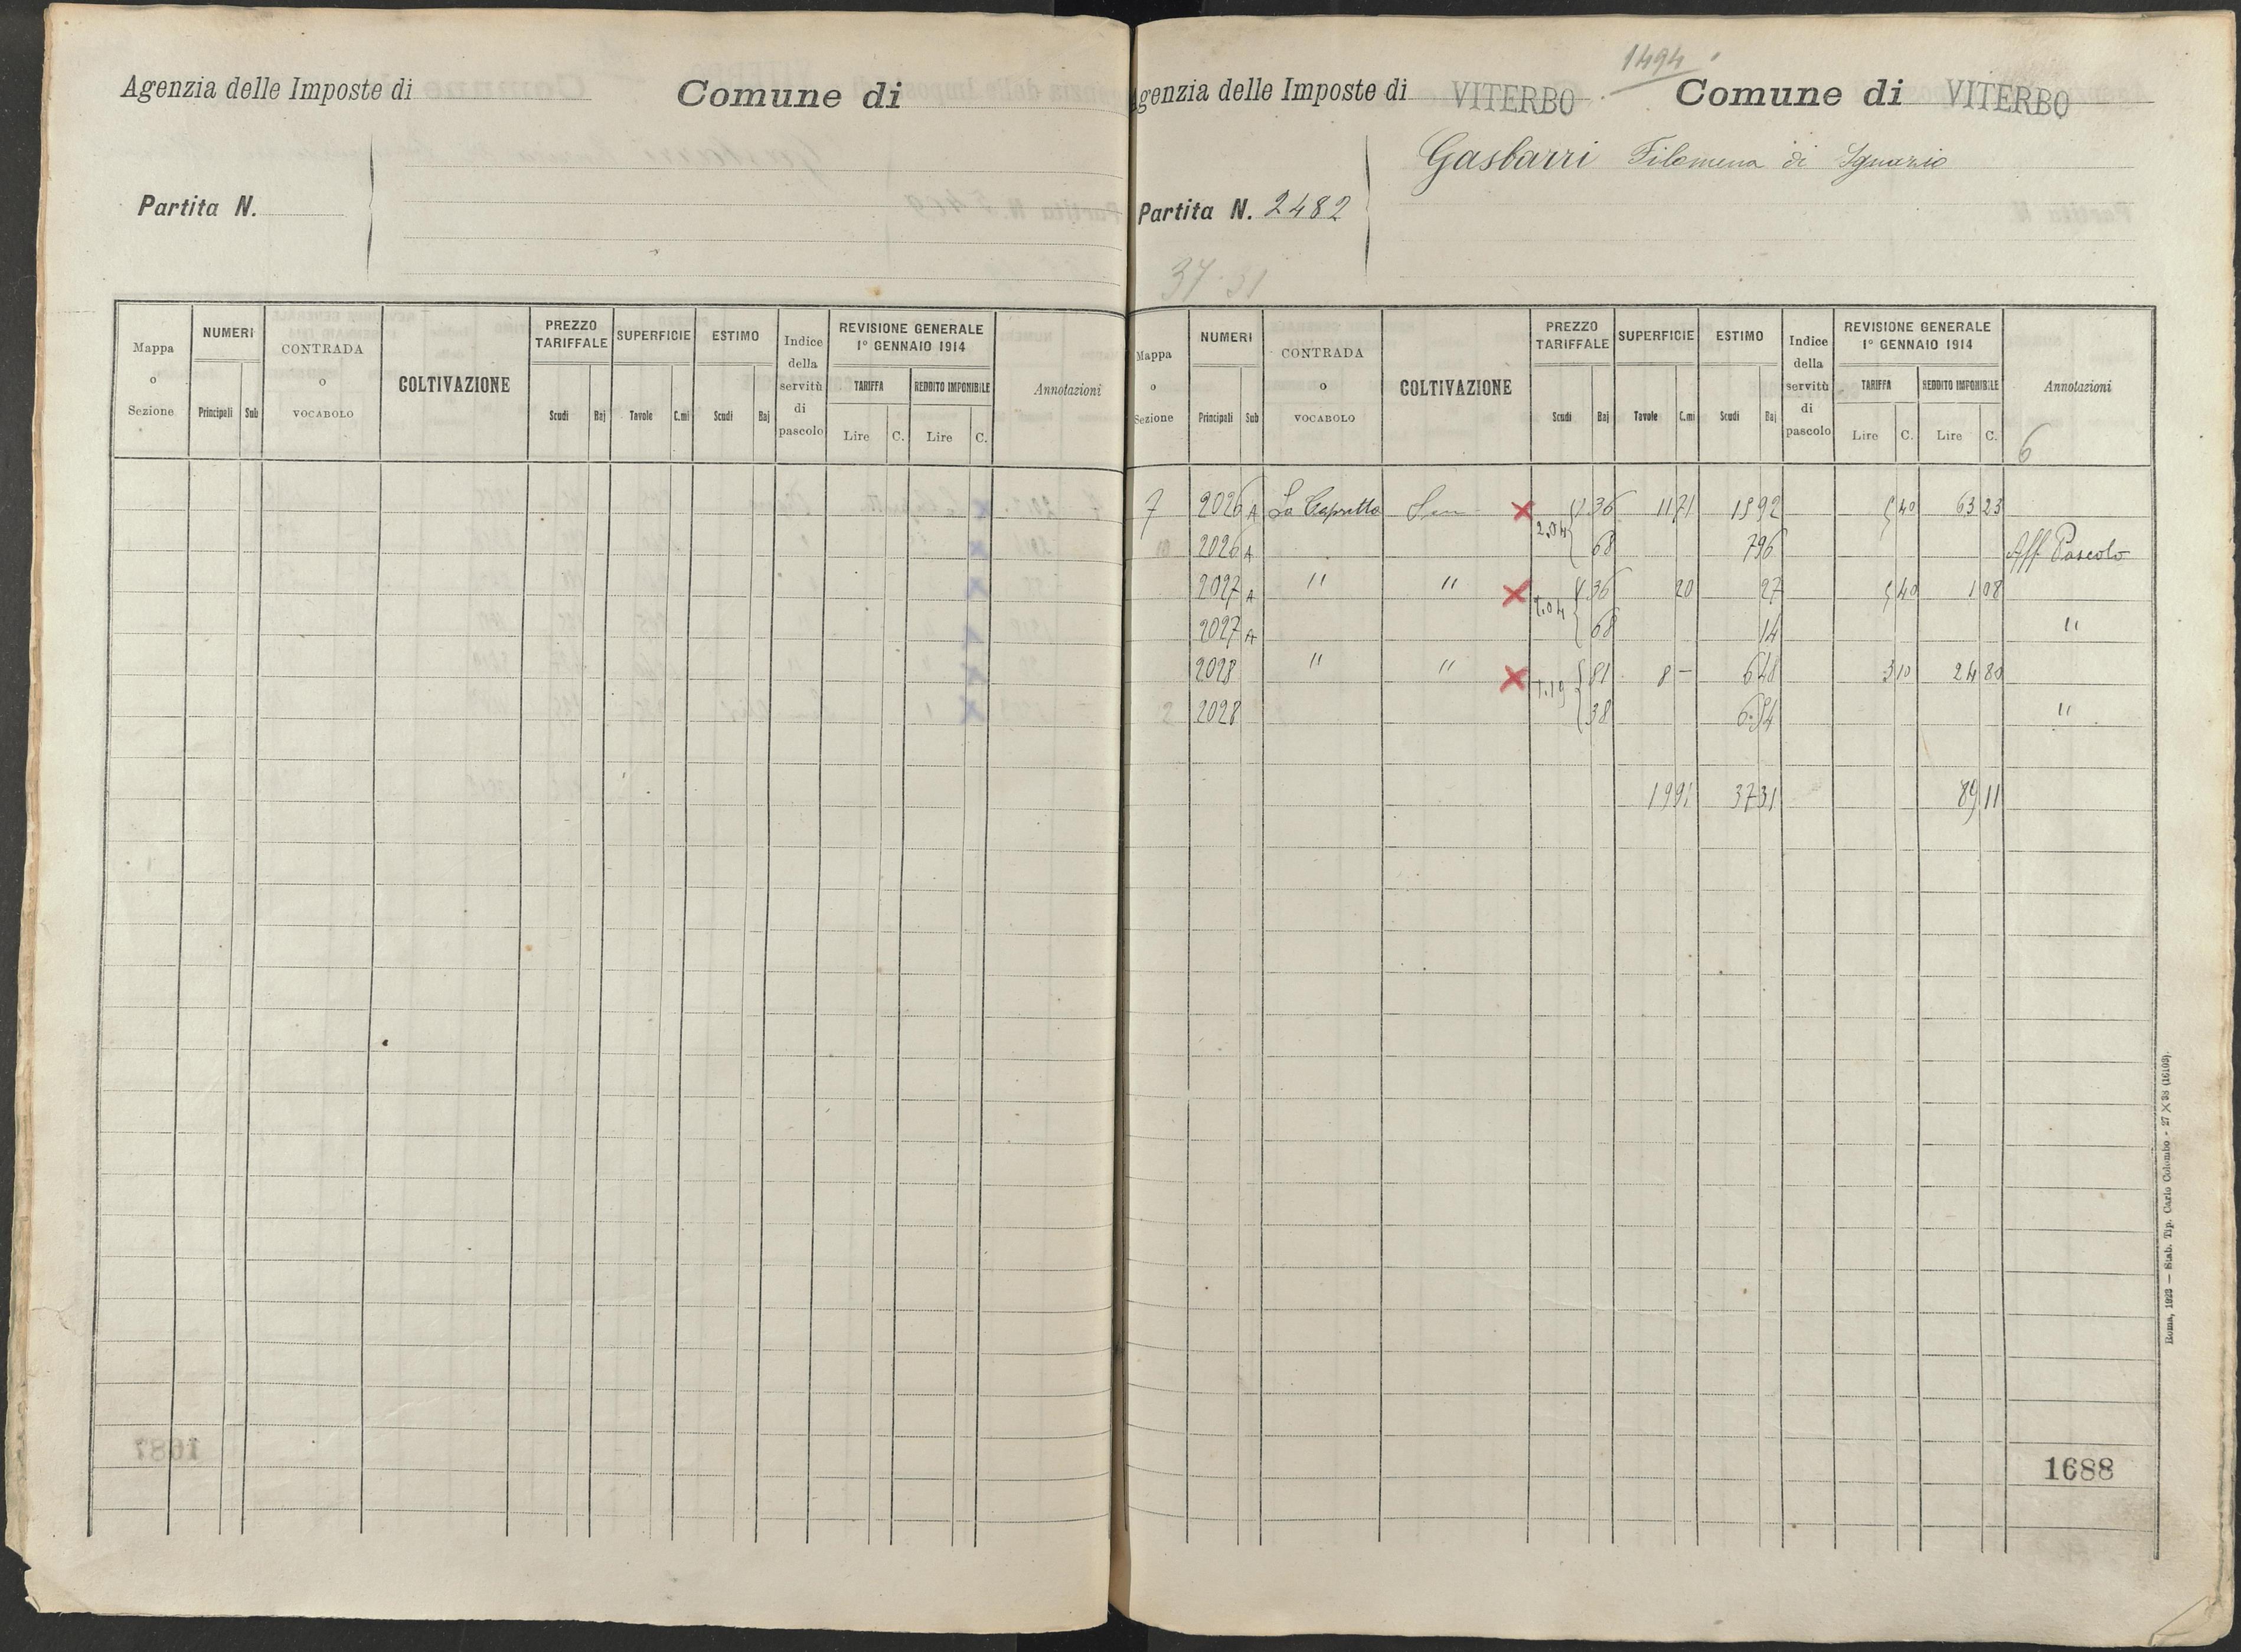 Agenzia delle Imposte di
Comune di
Partita N.
Mappa o Sezione
NUMERI
Principali Sub
CONTRADA o VOCABOLO
COLTIVAZIONE
PREZZO TARIFFALE
Scudi Baj
SUPERFICIE
Tavole C.mi
ESTIMO
Scudi Baj
Indice della servitù di pascolo
REVISIONE GENERALE
1° GENNAIO 1914
TARIFFA
Lire C.
REDDITO IMPONIBILE
Lire C.
Annotazioni
1687
1494
genzia delle Imposte di VITERBO Comune di VITERBO
Gasbarri Filomena di Ignazio
Partita N. 2482
37-31
Mappa o Sezione
NUMERI
Principali Sub
CONTRADA o VOCABOLO
COLTIVAZIONE
PREZZO TARIFFALE
Scudi Baj
SUPERFICIE
Tavole C.mi
ESTIMO
Scudi Baj
Indice della servitù di pascolo
REVISIONE GENERALE
1° GENNAIO 1914
TARIFFA
Lire C.
REDDITO IMPONIBILE
Lire C.
Annotazioni
6
7 2026 A La Capretta Sem 2.04 36 11 71 15 92 5 40 63 23
2026 A 68 7 96 Aff. Pascolo
2027 A " " 36 20 27 5 40 1 08
2027 A 68 14 "
2028 " " 1.19 81 8 – 6 48 3 10 24 80
2 2028 38 6 54 "
19 91 37 31 89 11
1688
Roma, 1923 — Stab. Tip. Carlo Colombo - 27 X 38 (16103).